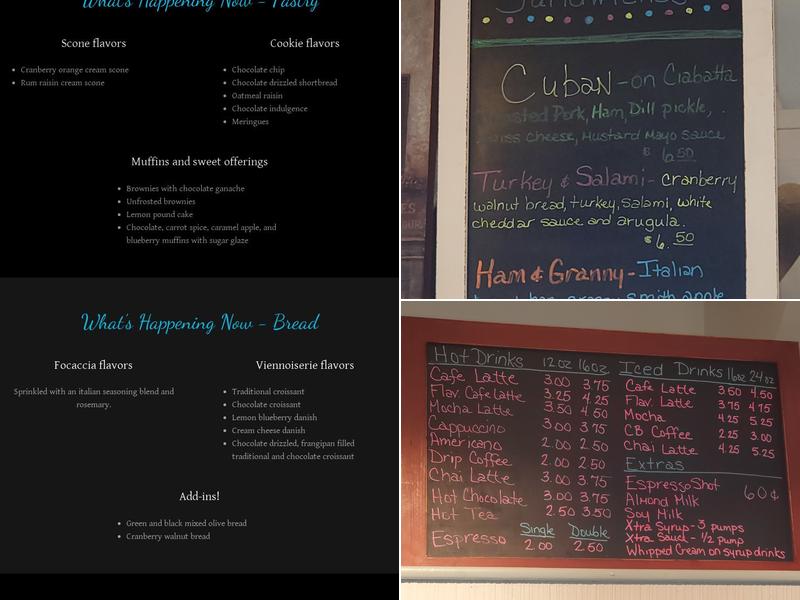 What's Happening Now - Pastry
Scone flavors
Cranberry orange cream scone
Rum raisin cream scone
Cookie flavors
Chocolate chip
Chocolate drizzled shortbread
Oatmeal raisin
Chocolate indulgence
Meringues
Muffins and sweet offerings
Brownies with chocolate ganache
Unfrosted brownies
Lemon pound cake
Chocolate, carrot spice, caramel apple, and
blueberry muffins with sugar glaze
What's Happening Now - Bread
Focaccia flavors
Sprinkled with an italian seasoning blend and
rosemary.
Viennoiserie flavors
Traditional croissant
Chocolate croissant
Lemon blueberry danish
Cream cheese danish
Chocolate drizzled, frangipan filled
traditional and chocolate croissant
Add-ins!
Green and black mixed olive bread
Cranberry walnut bread
Sandwiches
Cuban - on Ciabatta
Pork, Ham, Dill pickle,
Cheese, Mustard Mayo sauce
$ 6.50
Turkey & Salami - Cranberry
walnut bread, turkey, salami, white
cheddar sauce and arugula.
$6.50
Ham & Granny - Italian
granny smith apple
Hot Drinks 12oz 16oz
Cafe Latte 3.00 3.75
Flav. Cafe Latte 3.25 4.25
Mocha Latte 3.50 4.50
Cappuccino 3.00 3.75
Americano 2.00 2.50
Drip Coffee 2.00 2.50
Chai Latte 3.00 3.75
Hot Chocolate 3.00 3.75
Hot Tea 2.50 3.50
Single Double
Espresso 2.00 2.50
Iced Drinks 16oz 24oz
Cafe Latte 3.50 4.50
Flav. Latte 3.75 4.75
Mocha 4.25 5.25
CB Coffee 2.25 3.00
Chai Latte 4.25 5.25
Extras
Espresso Shot 60¢
Almond Milk
Soy Milk
Xtra Syrup - 3 pumps
Xtra Sauce - 1/2 pumps
Whipped Cream on syrup drinks